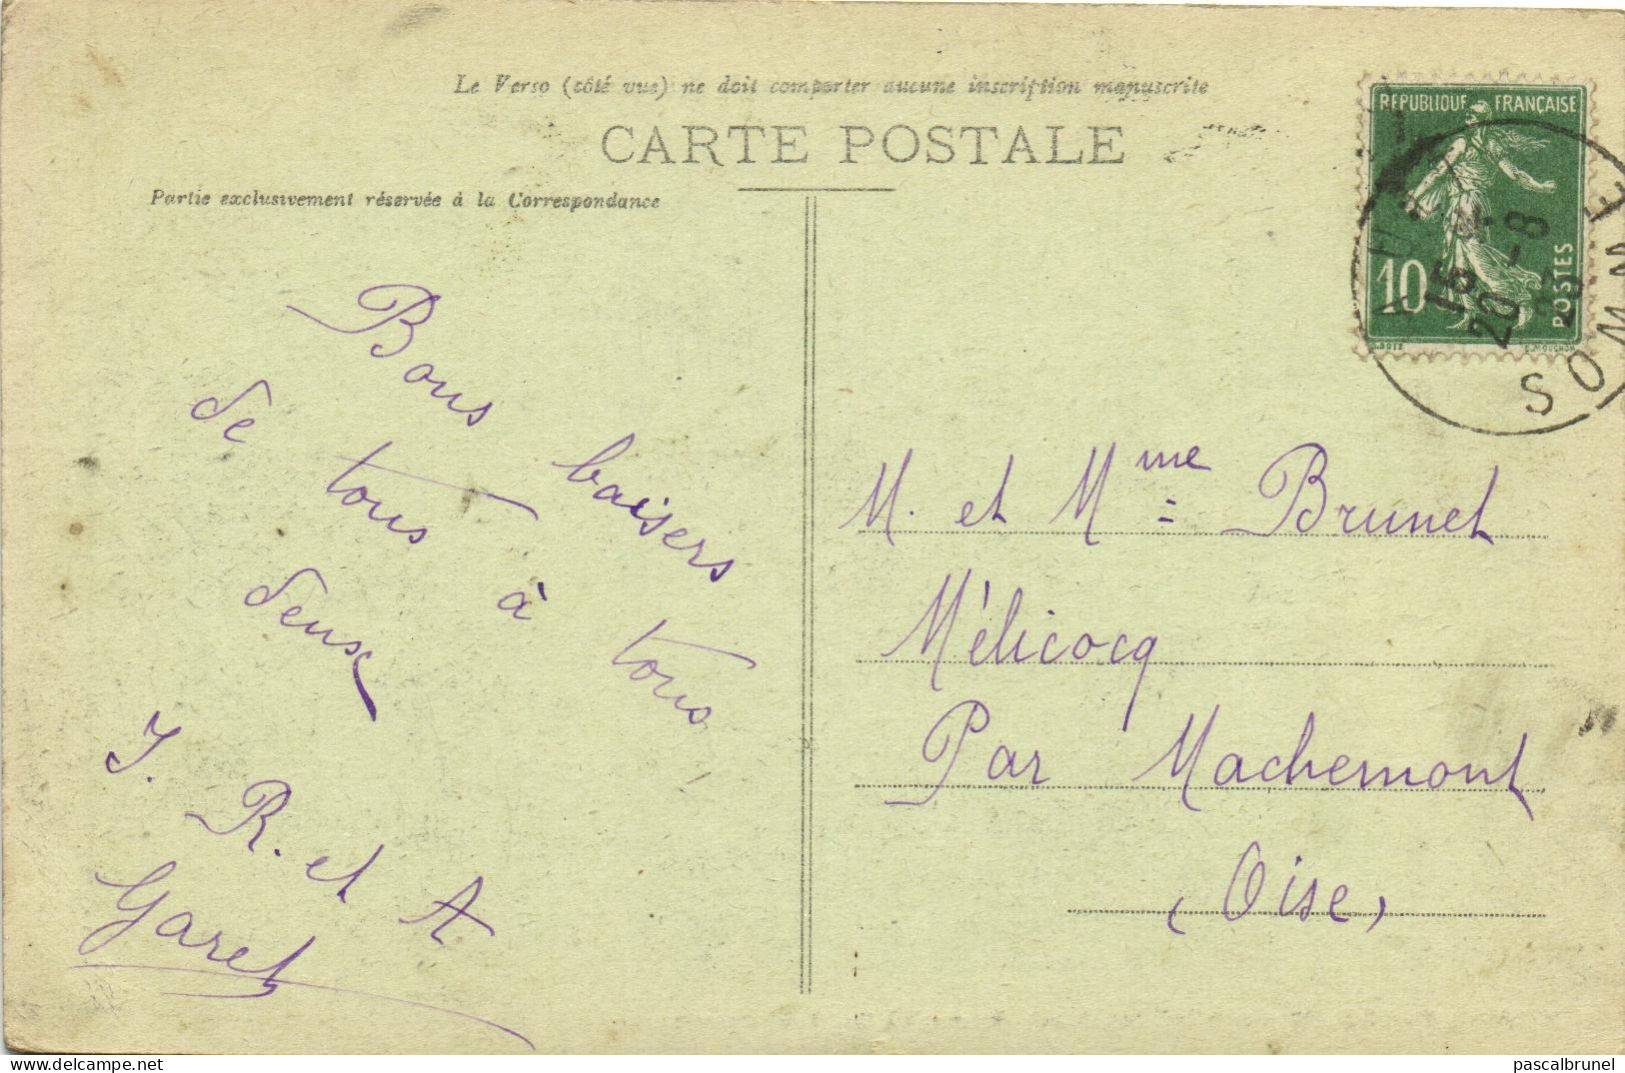 Le Verso (côté vue) ne doit comporter aucune inscription manuscrite
CARTE POSTALE
Partie exclusivement réservée à la Correspondance
Bons baisers
de tous à tous
deux
J. R. et A
Garet
REPUBLIQUE FRANÇAISE
10
POSTES
AULT
SOMME
15
20 -8
23
M. et Mme Brunet
Mélicocq
Par Machemont
(Oise)
pascalbrunel